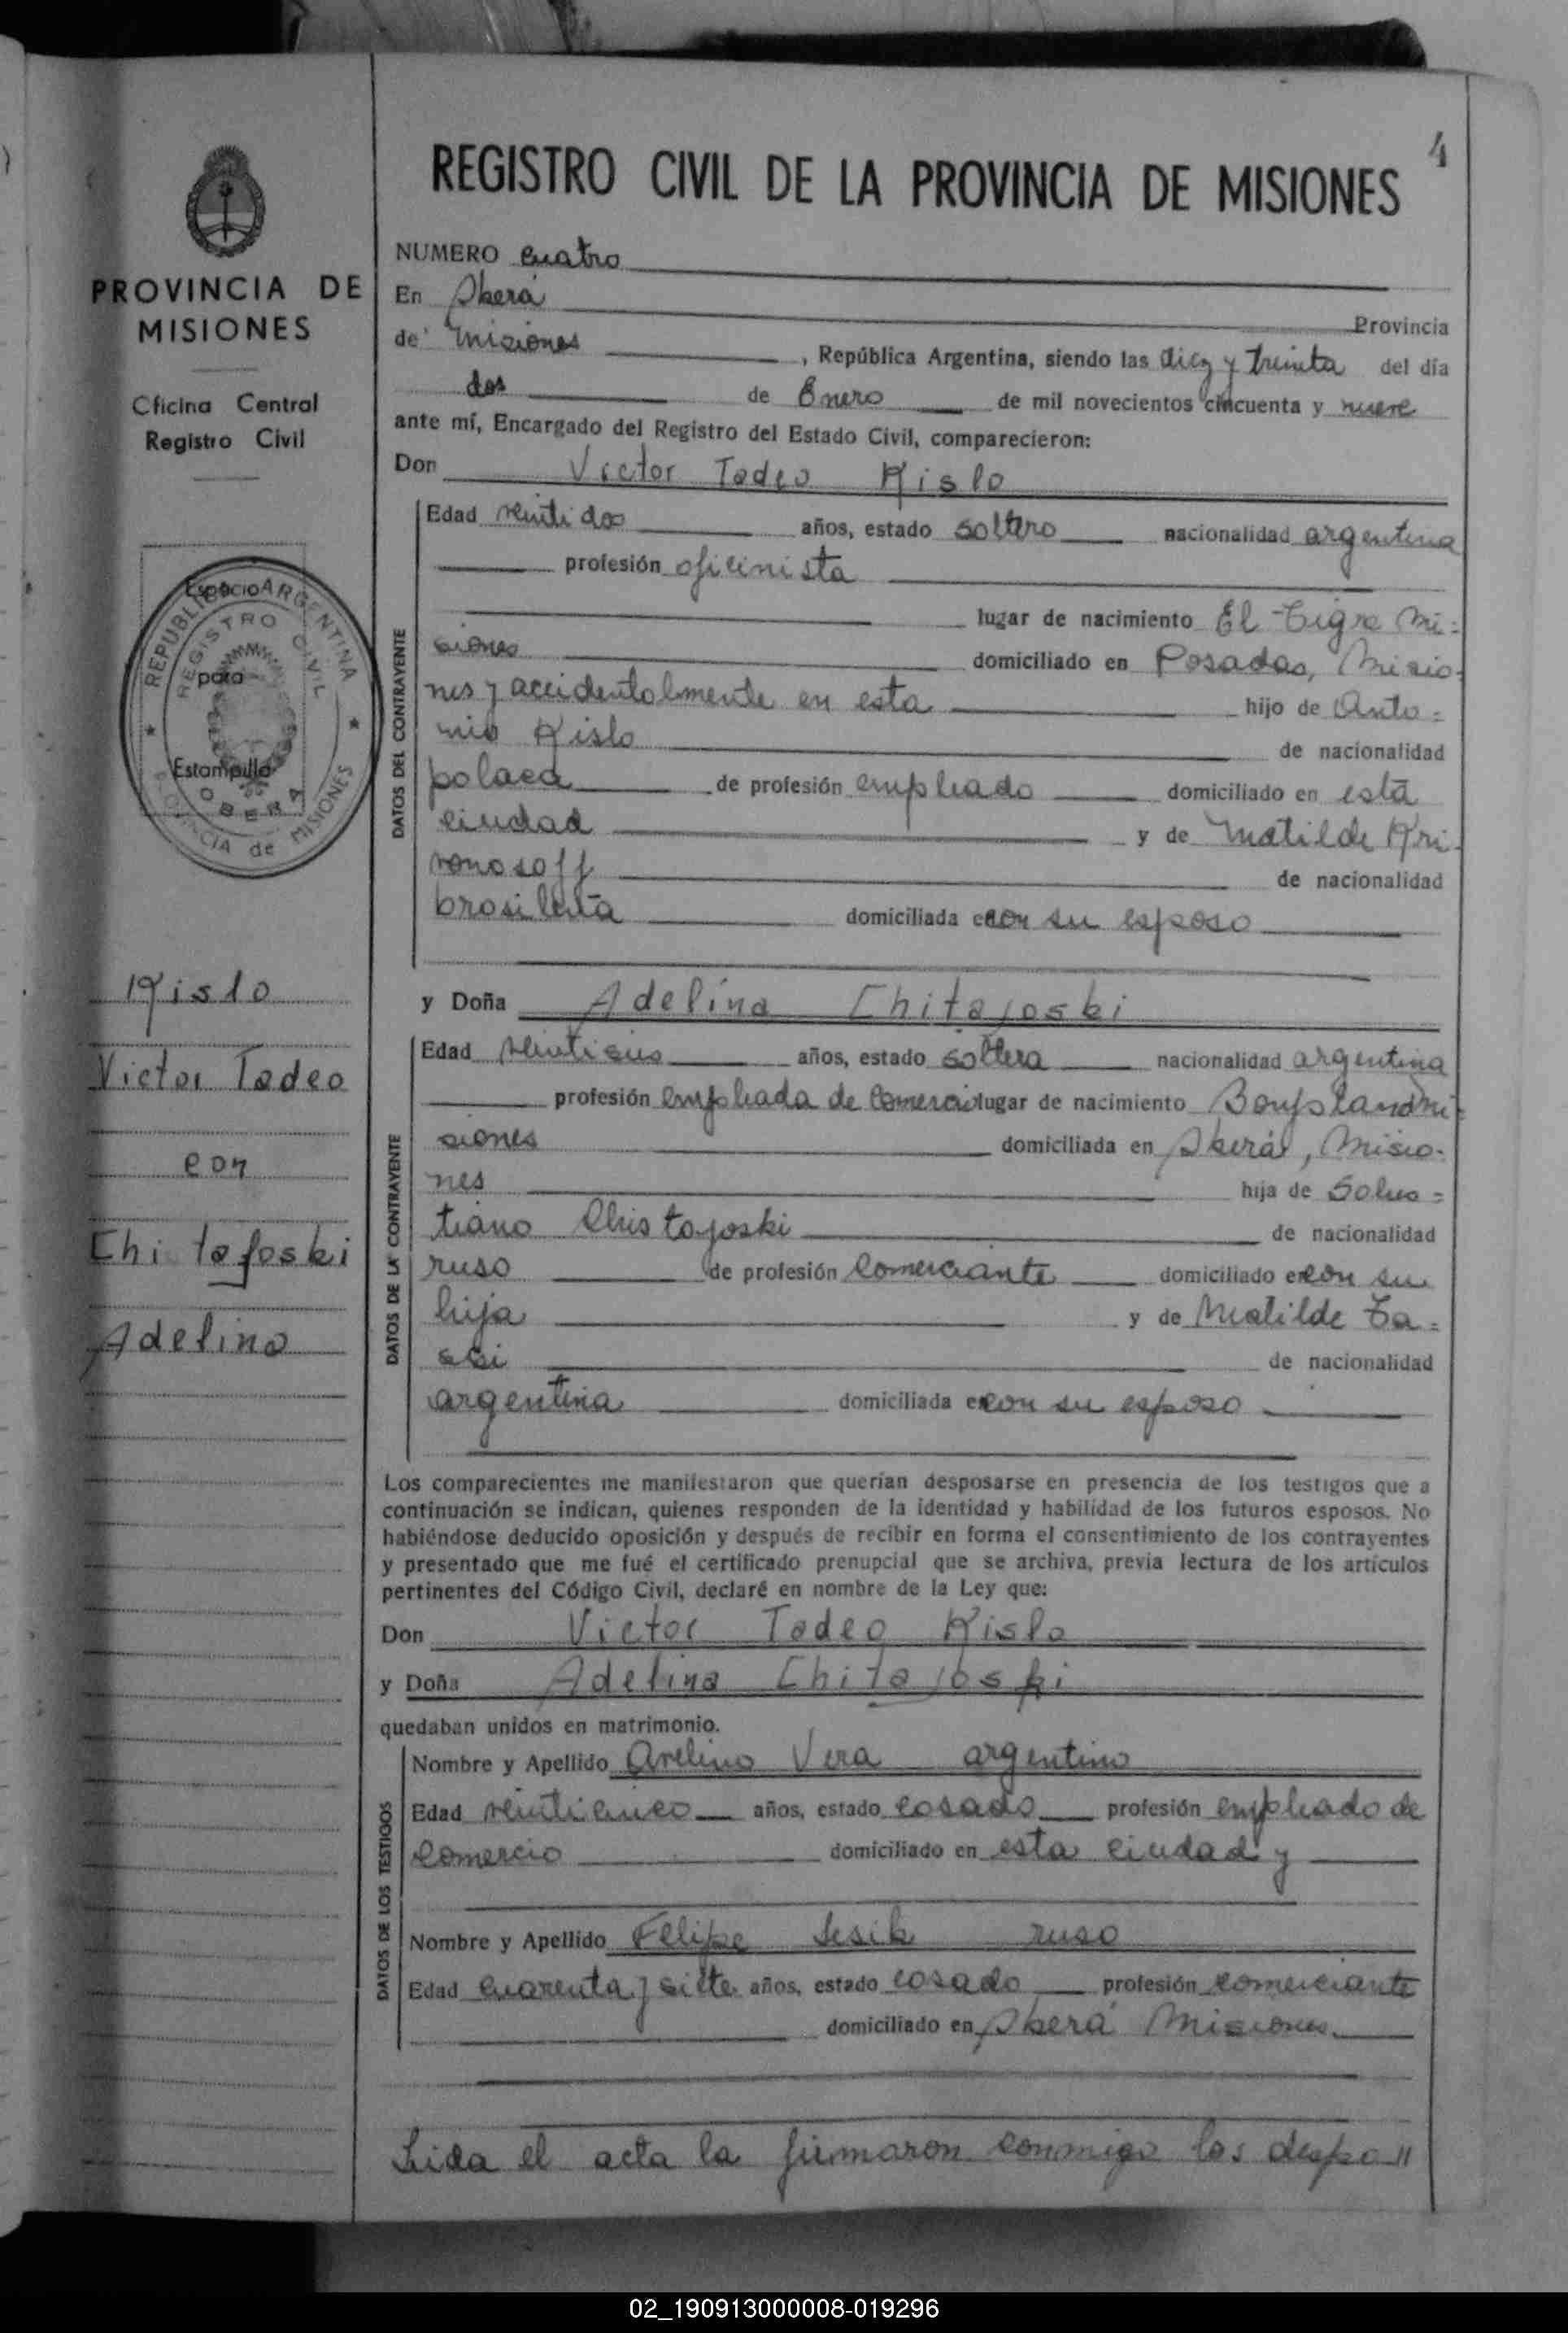 4
REGISTRO CIVIL DE LA PROVINCIA DE MISIONES
PROVINCIA DE
MISIONES
Oficina Central
Registro Civil
REPUBLICA ARGENTINA
REGISTRO CIVIL
Espacio
para
Estampilla
OBERA
PROVINCIA de MISIONES
Kislo
Victor Tadeo
con
Chitajoski
Adelina
NUMERO cuatro
En Oberá Provincia
de Misiones, República Argentina, siendo las diez y treinta del día
dos de Enero de mil novecientos cincuenta y nueve
ante mí, Encargado del Registro del Estado Civil, comparecieron:
Don Victor Tadeo Kislo
DATOS DEL CONTRAYENTE
Edad veintidos años, estado soltero nacionalidad argentina
profesión oficinista
lugar de nacimiento El Tigre Mi=
siones domiciliado en Posadas, Misio-
nes y accidentalmente en esta hijo de Anto=
nio Kislo de nacionalidad
polaca de profesión empleado domiciliado en esta
ciudad y de Matilde Kri-
vonosoff de nacionalidad
brasileña domiciliada en con su esposo
y Doña Adelina Chitajoski
DATOS DE LA CONTRAYENTE
Edad años, estado soltera nacionalidad argentina
profesión empleada de comercio lugar de nacimiento Bonpland Mi=
siones domiciliada en Oberá, Misio-
nes hija de
tiano de nacionalidad
ruso de profesión comerciante domiciliado en con su
hija y de Matilde
de nacionalidad
argentina domiciliada en con su esposo
Los comparecientes me manifestaron que querían desposarse en presencia de los testigos que a
continuación se indican, quienes responden de la identidad y habilidad de los futuros esposos. No
habiéndose deducido oposición y después de recibir en forma el consentimiento de los contrayentes
y presentado que me fué el certificado prenupcial que se archiva, previa lectura de los artículos
pertinentes del Código Civil, declaré en nombre de la Ley que:
Don Victor Tadeo Kislo
y Doña Adelina Chitajoski
quedaban unidos en matrimonio.
DATOS DE LOS TESTIGOS
Nombre y Apellido Avelino Vera argentino
Edad veinticinco años, estado casado profesión empleado de
comercio domiciliado en esta ciudad y
Nombre y Apellido Felipe Sesik ruso
Edad cuarenta y siete años, estado casado profesión comerciante
domiciliado en Oberá Misiones
Leida el acta la firmaron conmigo los despo"
02_190913000008-019296